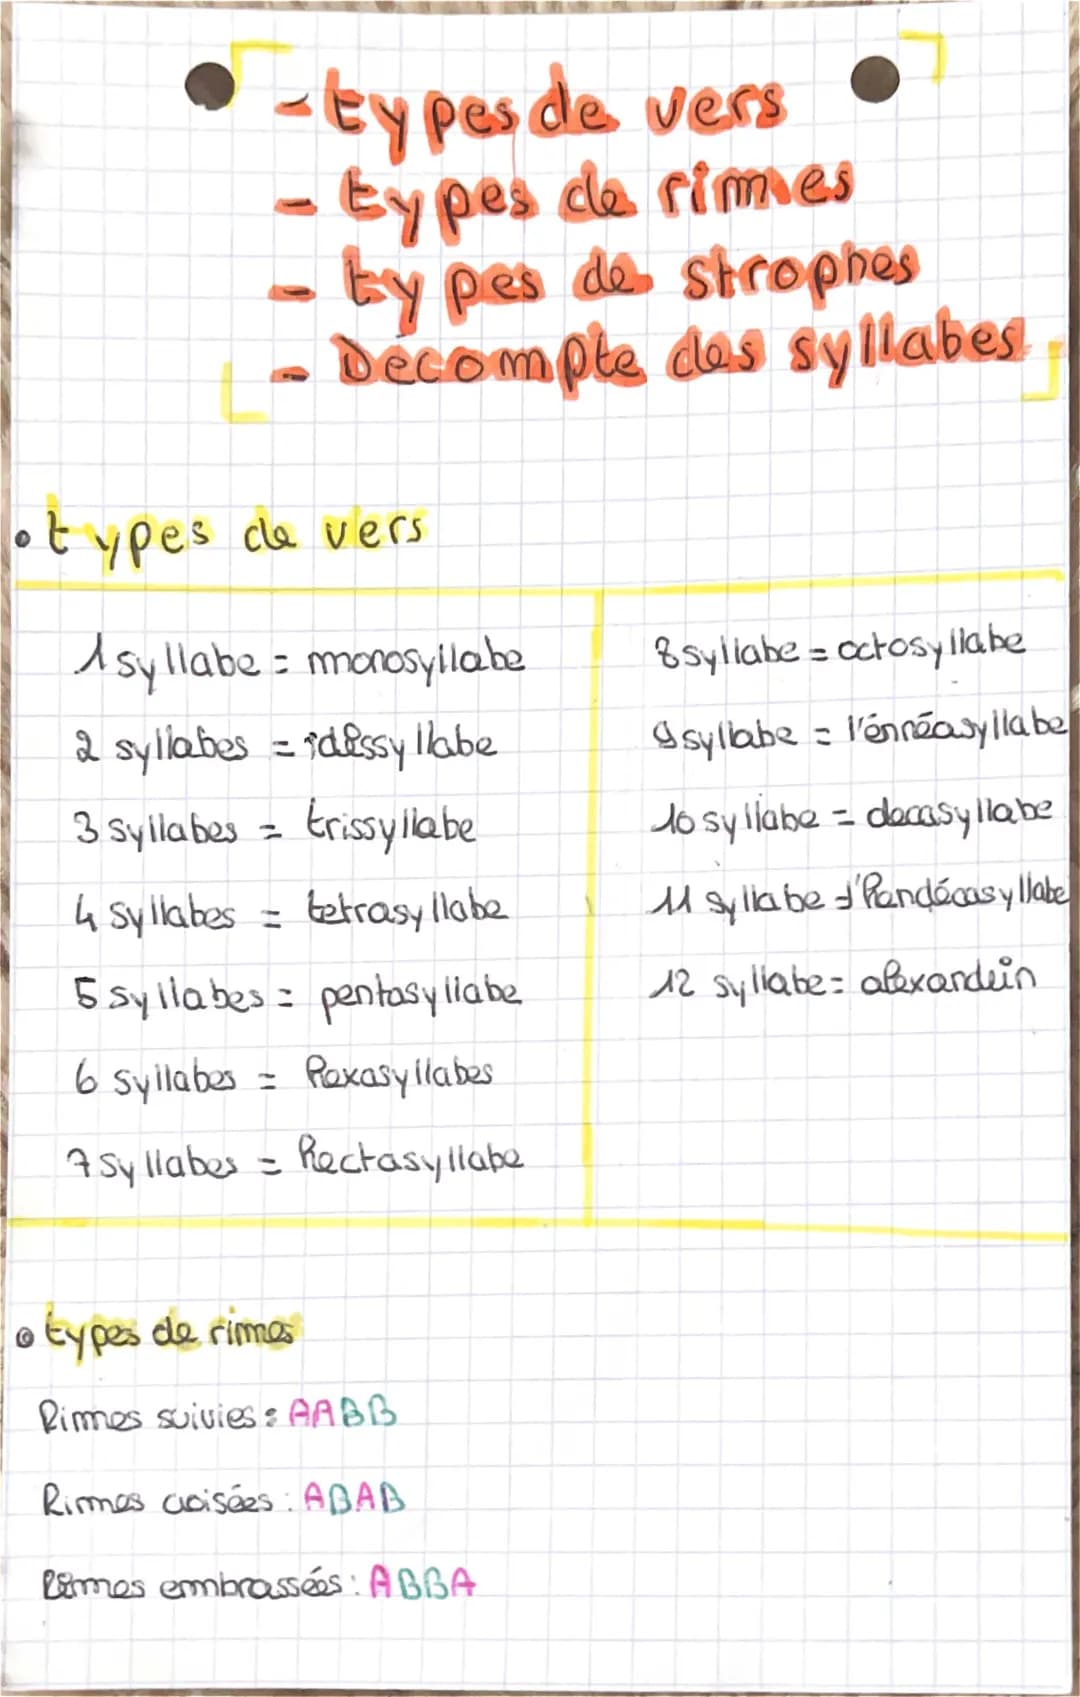 - types de vers
- types de rimes
- types de strophes
- Decompte des syllabes
• types de vers
1 syllabe = monosyllabe
2 syllabes =
3 syllabes = trissyllabe
4 syllabes = tetrasyllabe
5 syllabes = pentasyllabe
6 syllabes = hexasyllabes
7 syllabes = hectasyllabe
8 syllabe = octosyllabe
9 syllabe = l'énnéasyllabe
10 syllabe = decasyllabe
11 syllabe = l'handécasyllabe
12 syllabe = alexandrin
• types de rimes
Rimes suivies : AABB
Rimes croisées : ABAB
Rimes embrassées : ABBA